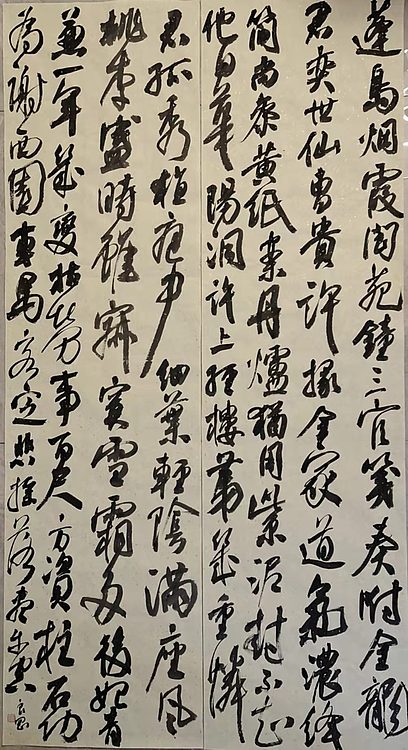 蓬島烟霞閬苑鐘三官箋奏附金龍
君奕世仙曹貴許掾全家道氣濃絳
簡尚參黃紙案丹爐猶用紫泥封不知
他日華陽洞許上經樓第幾重憐
君孤秀植庭中細葉輕陰滿座風
桃李盛時雖寂寞雪霜多後始青
蔥一年幾變枯榮事百尺方資柱石功
為謝西園車馬客定悲搖落盡成空